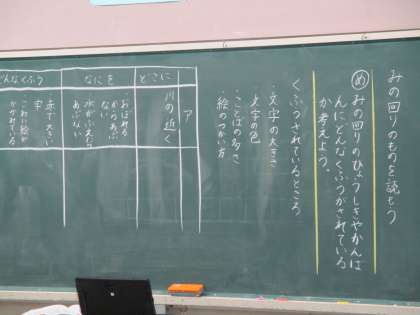 みの回りのものを読もう
め みの回りのひょうしきやかんば
んにどんなくふうがされている
か考えよう。
くふうされているところ
・文字の大きさ
文字の色
・ことばの多さ
・絵のつかい方
ア
どこに
川の近く
なにを
おぼれる
からあぶ
ない
水がふえたら
あぶない
どんなくふう
赤で大きい
字
こわい絵が
かかれている